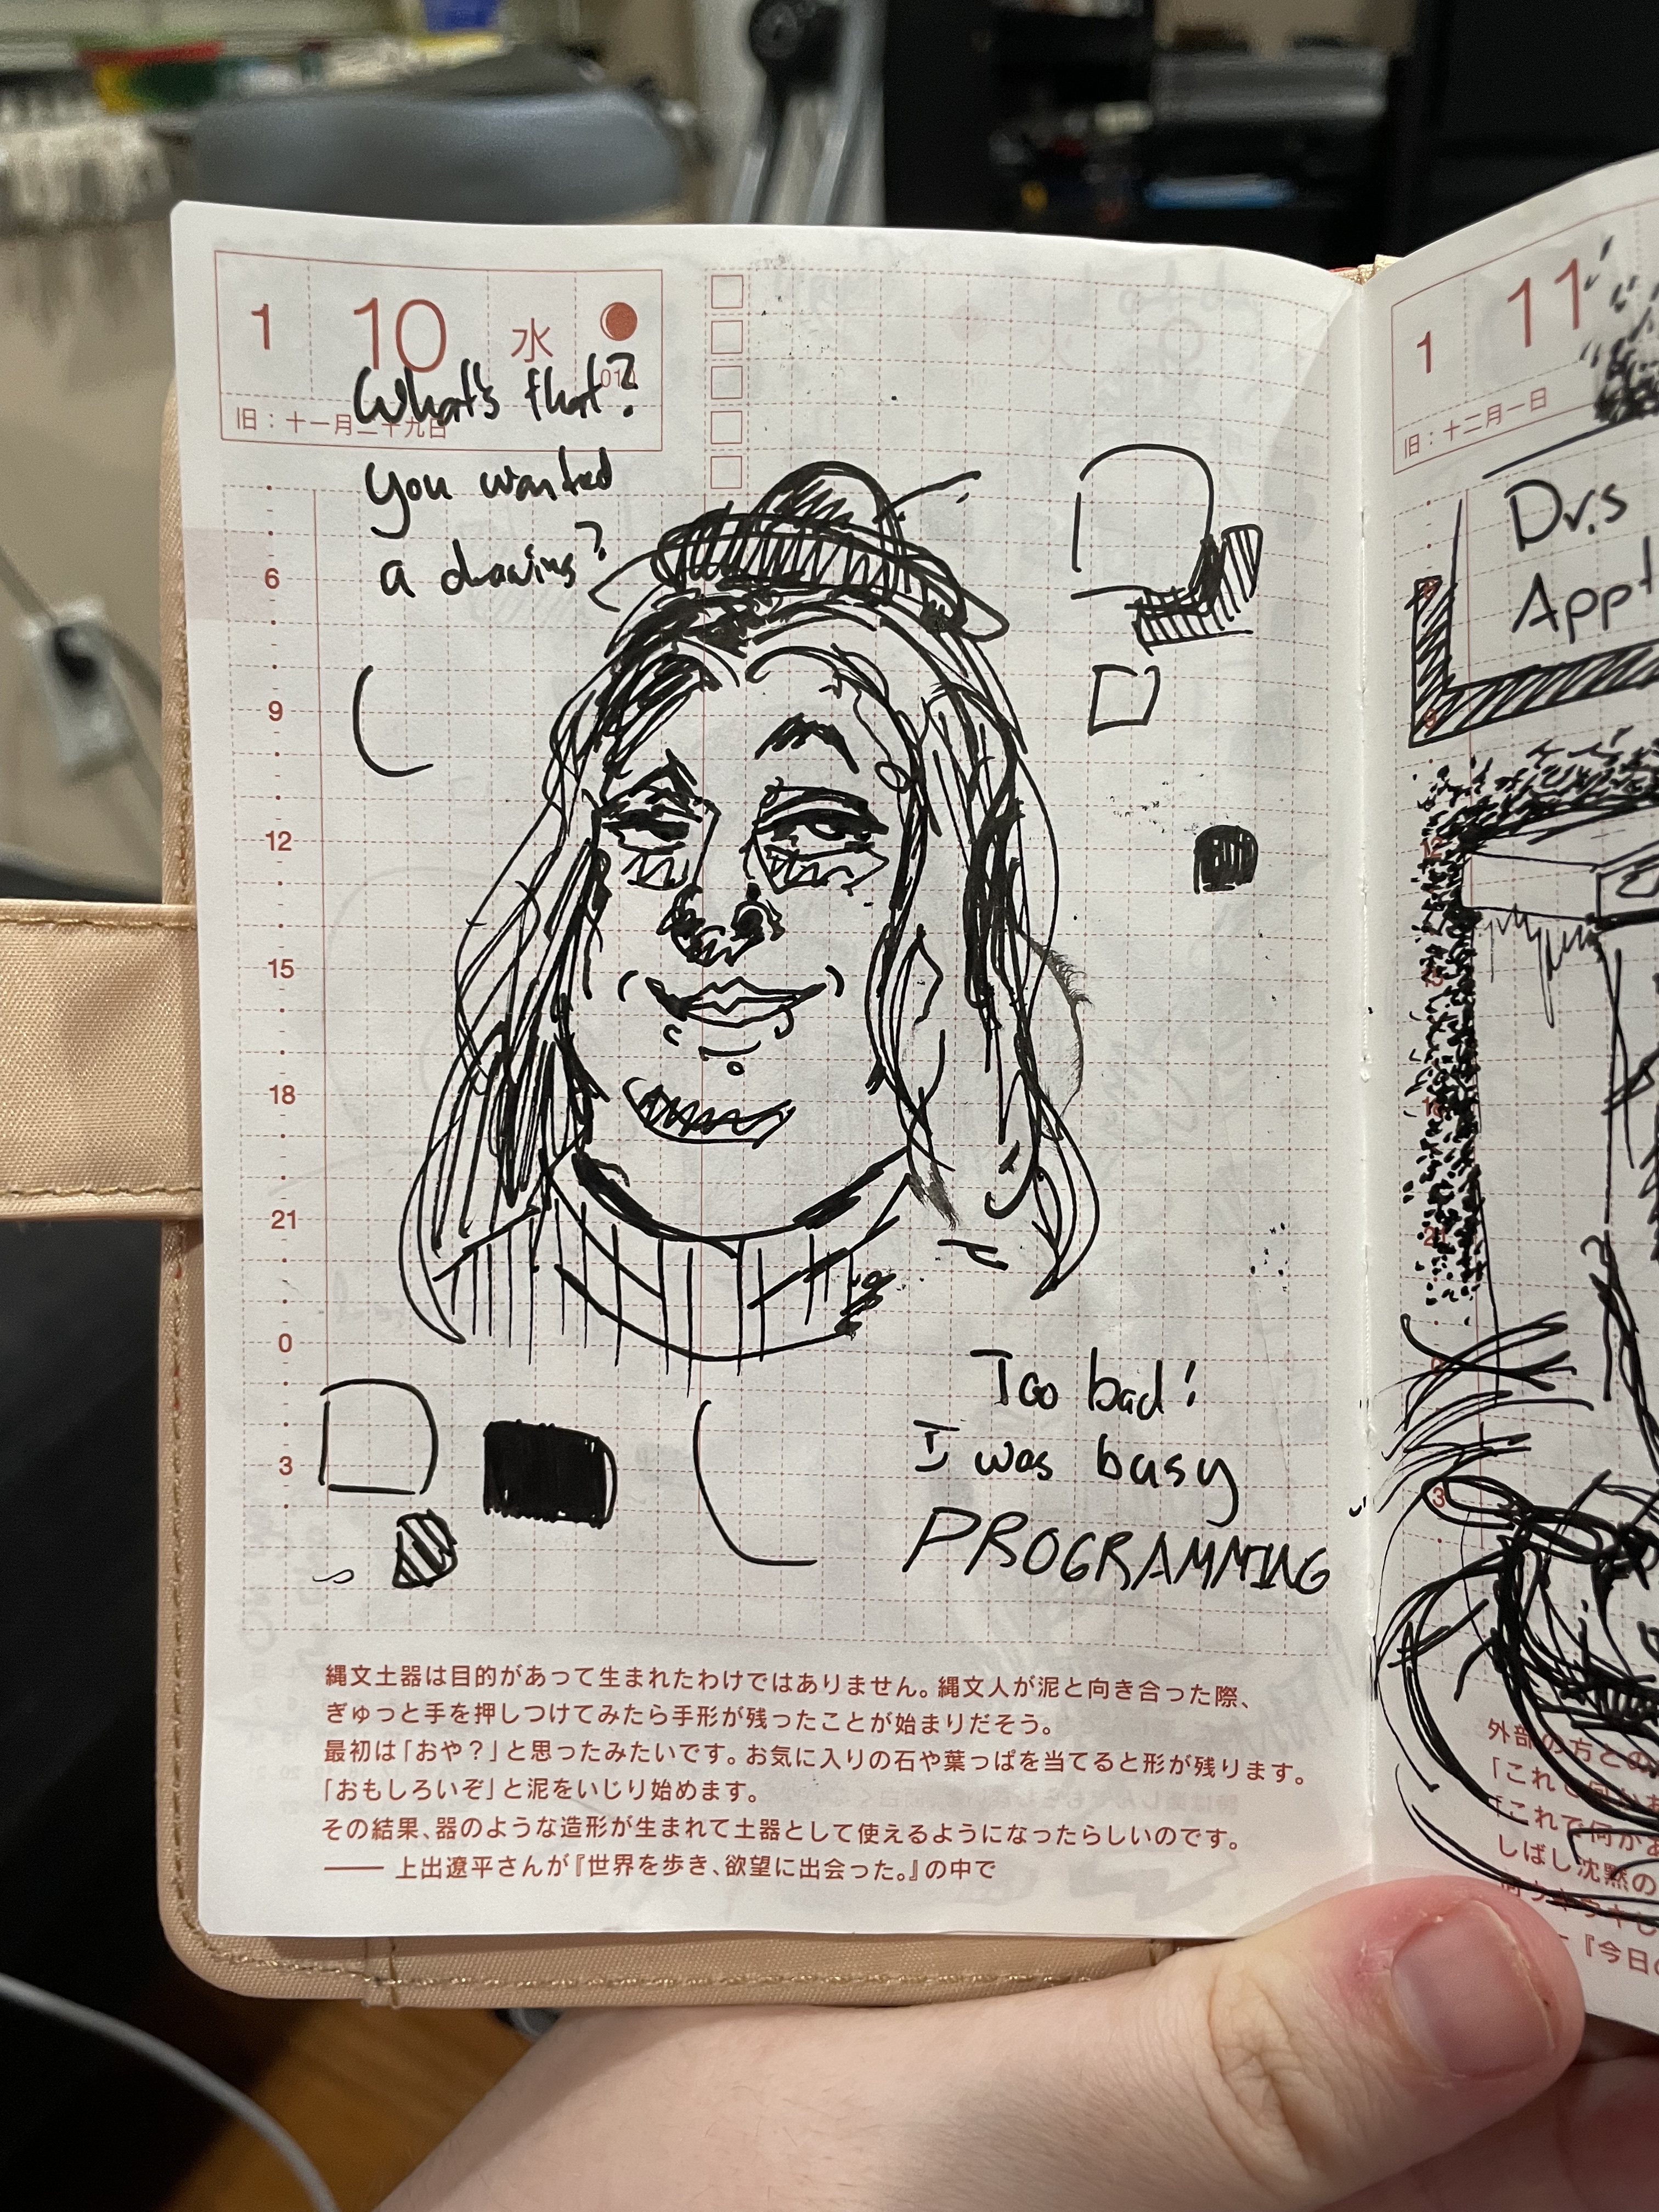 1 10 水
旧：十一月二十九日
What's that?
you wanted
a drawing?
6
9
12
15
18
21
0
3
Too bad!
I was busy
PROGRAMMING
縄文土器は目的があって生まれたわけではありません。縄文人が泥と向き合った際、
ぎゅっと手を押しつけてみたら手形が残ったことが始まりだそう。
最初は「おや？」と思ったみたいです。お気に入りの石や葉っぱを当てると形が残ります。
「おもしろいぞ」と泥をいじり始めます。
その結果、器のような造形が生まれて土器として使えるようになったらしいのです。
—— 上出遼平さんが『世界を歩き、欲望に出会った。』の中で
1 11
旧：十二月一日
Dr.s
Appt
12
21
3
外部の方との
「これで何か
「これで何かあ
しばし沈黙の
『今日の